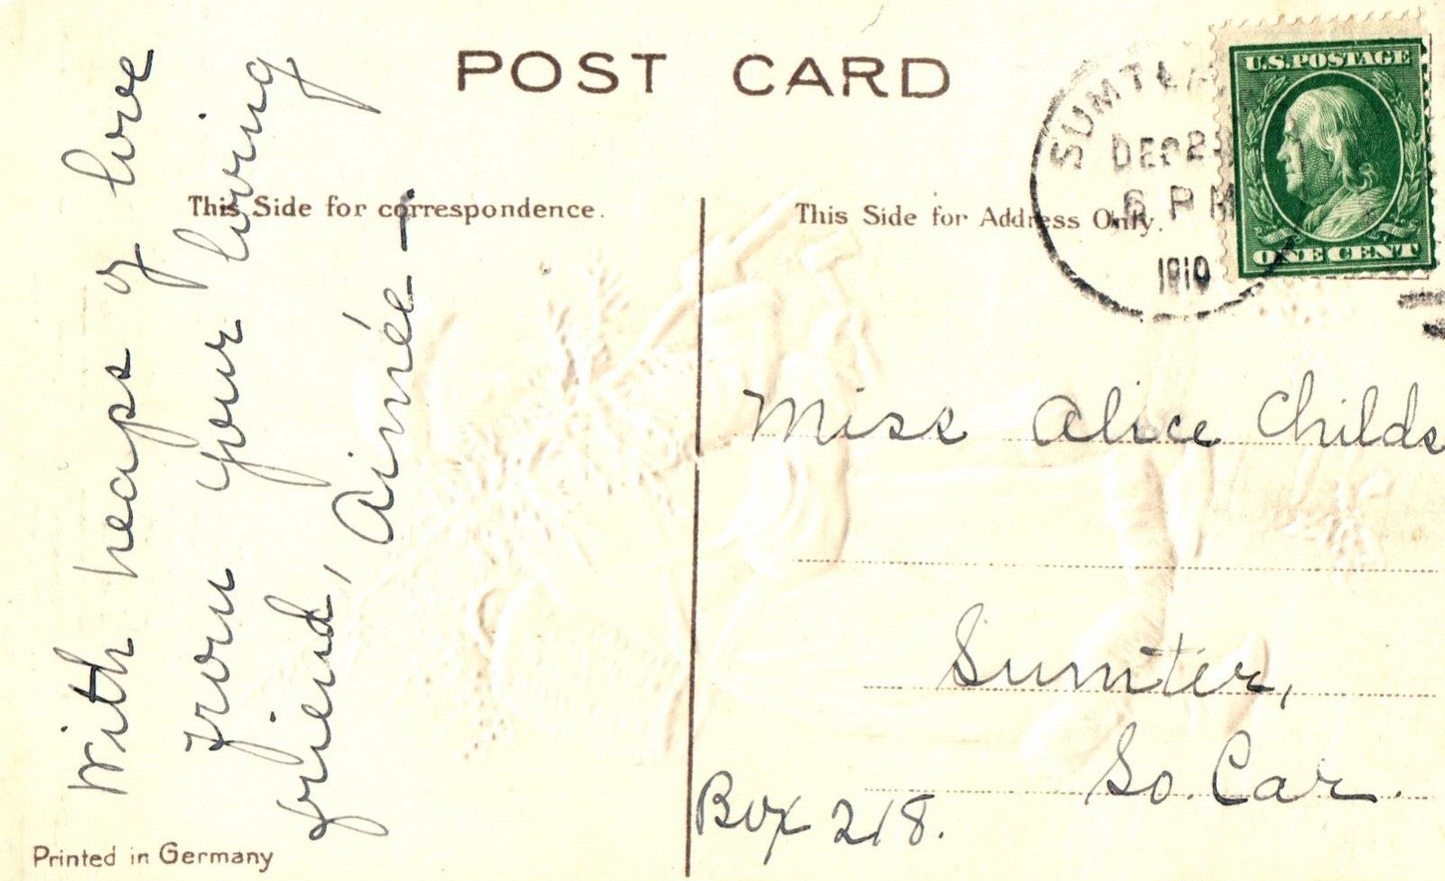 POST CARD
U.S. POSTAGE
ONE CENT
SUMTER
6 PM
1910
This Side for correspondence.
This Side for Address Only.
With heaps of love
from your loving
friend, Aimée —
Miss Alice Childs
Sumter,
So. Car.
Box 218.
Printed in Germany